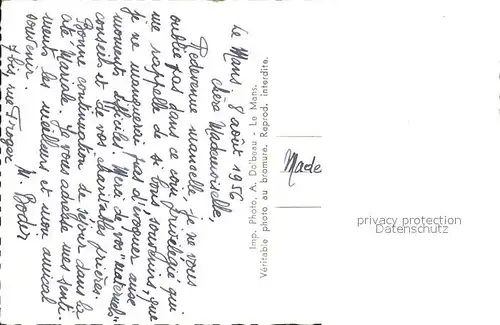 Le Mans 2 août 1956
chère Mademoiselle,
Redevenue mancelle, je ne vous
oublie pas dans ce coin privilégié qui
me rappelle de si bons souvenirs, que
je ne manquerai pas d'évoquer aux
moments difficiles. Merci de vos "maternels"
conseils et de vos charitables prières.
Bonne continuation de séjour dans la
cité Mariale. Je vous adresse mes senti-
ments les meilleurs et mon amical
souvenir.
M. Bodin
7 bis rue Froger
Imp. Photo. A. Dolbeau - Le Mans.
Véritable photo au bromure. Reprod. interdite.
Made
privacy protection
Datenschutz